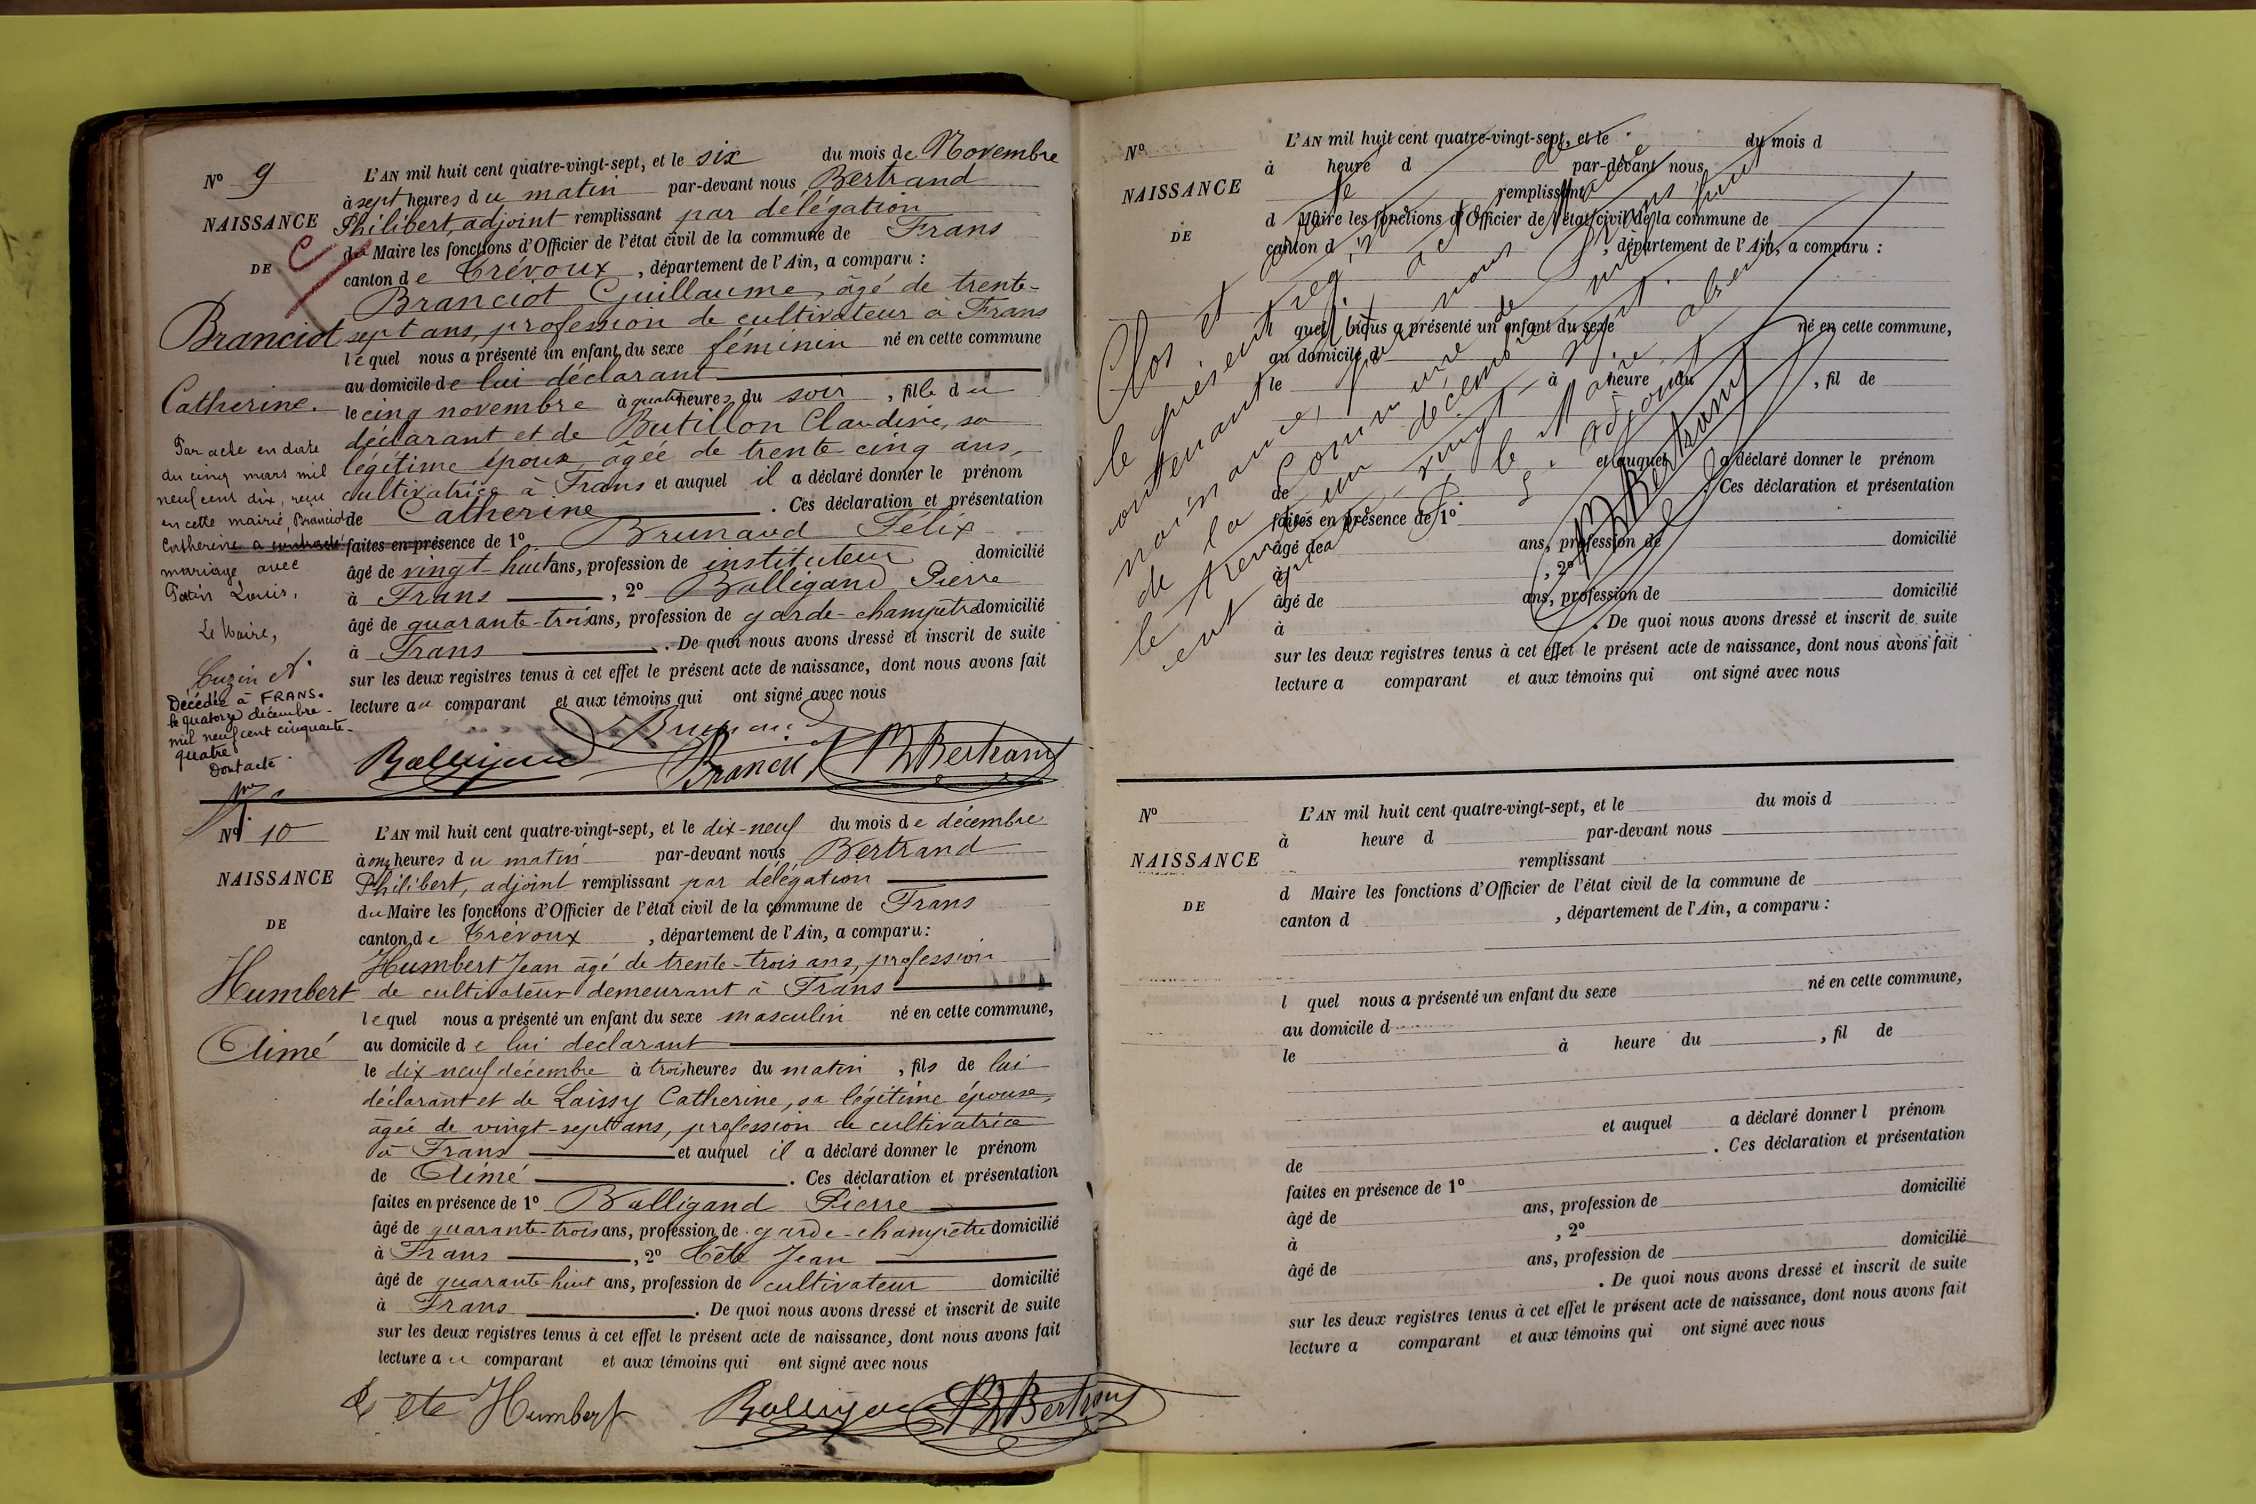 N° 9
NAISSANCE
DE
Branciot
Catherine.
Par acte en date
du cinq mars mil
neuf cent dix, reçu
en cette mairie, Branciot
Catherine a contracté
mariage avec
Patin Louis.
Le Maire,
Décédée à FRANS.
le quatorze décembre
mil neuf cent cinquante-
quatre
Dont acte
L'AN mil huit cent quatre-vingt-sept, et le six du mois de Novembre
à sept heures du matin par-devant nous Bertrand
Philibert, adjoint remplissant par délégation
du Maire les fonctions d'Officier de l'état civil de la commune de Frans
canton de Trévoux, département de l'Ain, a comparu :
Branciot Guillaume, âgé de trente-
sept ans, profession de cultivateur à Frans
lequel nous a présenté un enfant du sexe féminin né en cette commune
au domicile de lui déclarant
le cinq novembre à quatre heures du soir, fille du
déclarant et de Butillon Claudine, sa
légitime épouse, âgée de trente cinq ans,
cultivatrice à Frans et auquel il a déclaré donner le prénom
de Catherine. Ces déclaration et présentation
faites en présence de 1° Brunaud Félix
âgé de vingt-huit ans, profession de instituteur domicilié
à Frans, 2° Balligand Pierre
âgé de quarante-trois ans, profession de garde-champêtre domicilié
à Frans. De quoi nous avons dressé et inscrit de suite
sur les deux registres tenus à cet effet le présent acte de naissance, dont nous avons fait
lecture au comparant et aux témoins qui ont signé avec nous
Balligand Branciot Bertrand
N° 10
NAISSANCE
DE
Humbert
Aimé
L'AN mil huit cent quatre-vingt-sept, et le dix-neuf du mois de décembre
à onze heures du matin par-devant nous Bertrand
Philibert, adjoint remplissant par délégation
du Maire les fonctions d'Officier de l'état civil de la commune de Frans
canton de Trévoux, département de l'Ain, a comparu :
Humbert Jean âgé de trente-trois ans, profession
de cultivateur demeurant à Frans
lequel nous a présenté un enfant du sexe masculin né en cette commune,
au domicile de lui déclarant
le dix-neuf décembre à trois heures du matin, fils de lui
déclarant et de Laissy Catherine, sa légitime épouse,
âgée de vingt-sept ans, profession de cultivatrice
à Frans et auquel il a déclaré donner le prénom
de Aimé. Ces déclaration et présentation
faites en présence de 1° Balligand Pierre
âgé de quarante-trois ans, profession de garde-champêtre domicilié
à Frans, 2° Tête Jean
âgé de quarante-huit ans, profession de cultivateur domicilié
à Frans. De quoi nous avons dressé et inscrit de suite
sur les deux registres tenus à cet effet le présent acte de naissance, dont nous avons fait
lecture au comparant et aux témoins qui ont signé avec nous
Tête Humbert Balligand Bertrand
N°
NAISSANCE
DE
L'AN mil huit cent quatre-vingt-sept, et le du mois d
à heure d par-devant nous
remplissant
d Maire les fonctions d'Officier de l'état civil de la commune de
canton d, département de l'Ain, a comparu :
quel nous a présenté un enfant du sexe né en cette commune,
au domicile de
le à heure du, fil de
et auquel a déclaré donner le prénom
de Ces déclaration et présentation
faites en présence de 1°
âgé de ans, profession de domicilié
à, 2°
âgé de ans, profession de domicilié
à. De quoi nous avons dressé et inscrit de suite
sur les deux registres tenus à cet effet le présent acte de naissance, dont nous avons fait
lecture a comparant et aux témoins qui ont signé avec nous
Clos et
le présent
contenant
naissance,
de la Commune de
le trente un décembre mil huit
cent quatre vingt-sept.
P. le Maire absent
adjoint
Bertrand
N°
NAISSANCE
DE
L'AN mil huit cent quatre-vingt-sept, et le du mois d
à heure d par-devant nous
remplissant
d Maire les fonctions d'Officier de l'état civil de la commune de
canton d, département de l'Ain, a comparu :
l quel nous a présenté un enfant du sexe né en cette commune,
au domicile d
le à heure du, fil de
et auquel a déclaré donner l prénom
de. Ces déclaration et présentation
faites en présence de 1°
âgé de ans, profession de domicilié
à, 2°
âgé de ans, profession de domicilié
. De quoi nous avons dressé et inscrit de suite
sur les deux registres tenus à cet effet le présent acte de naissance, dont nous avons fait
lecture a comparant et aux témoins qui ont signé avec nous